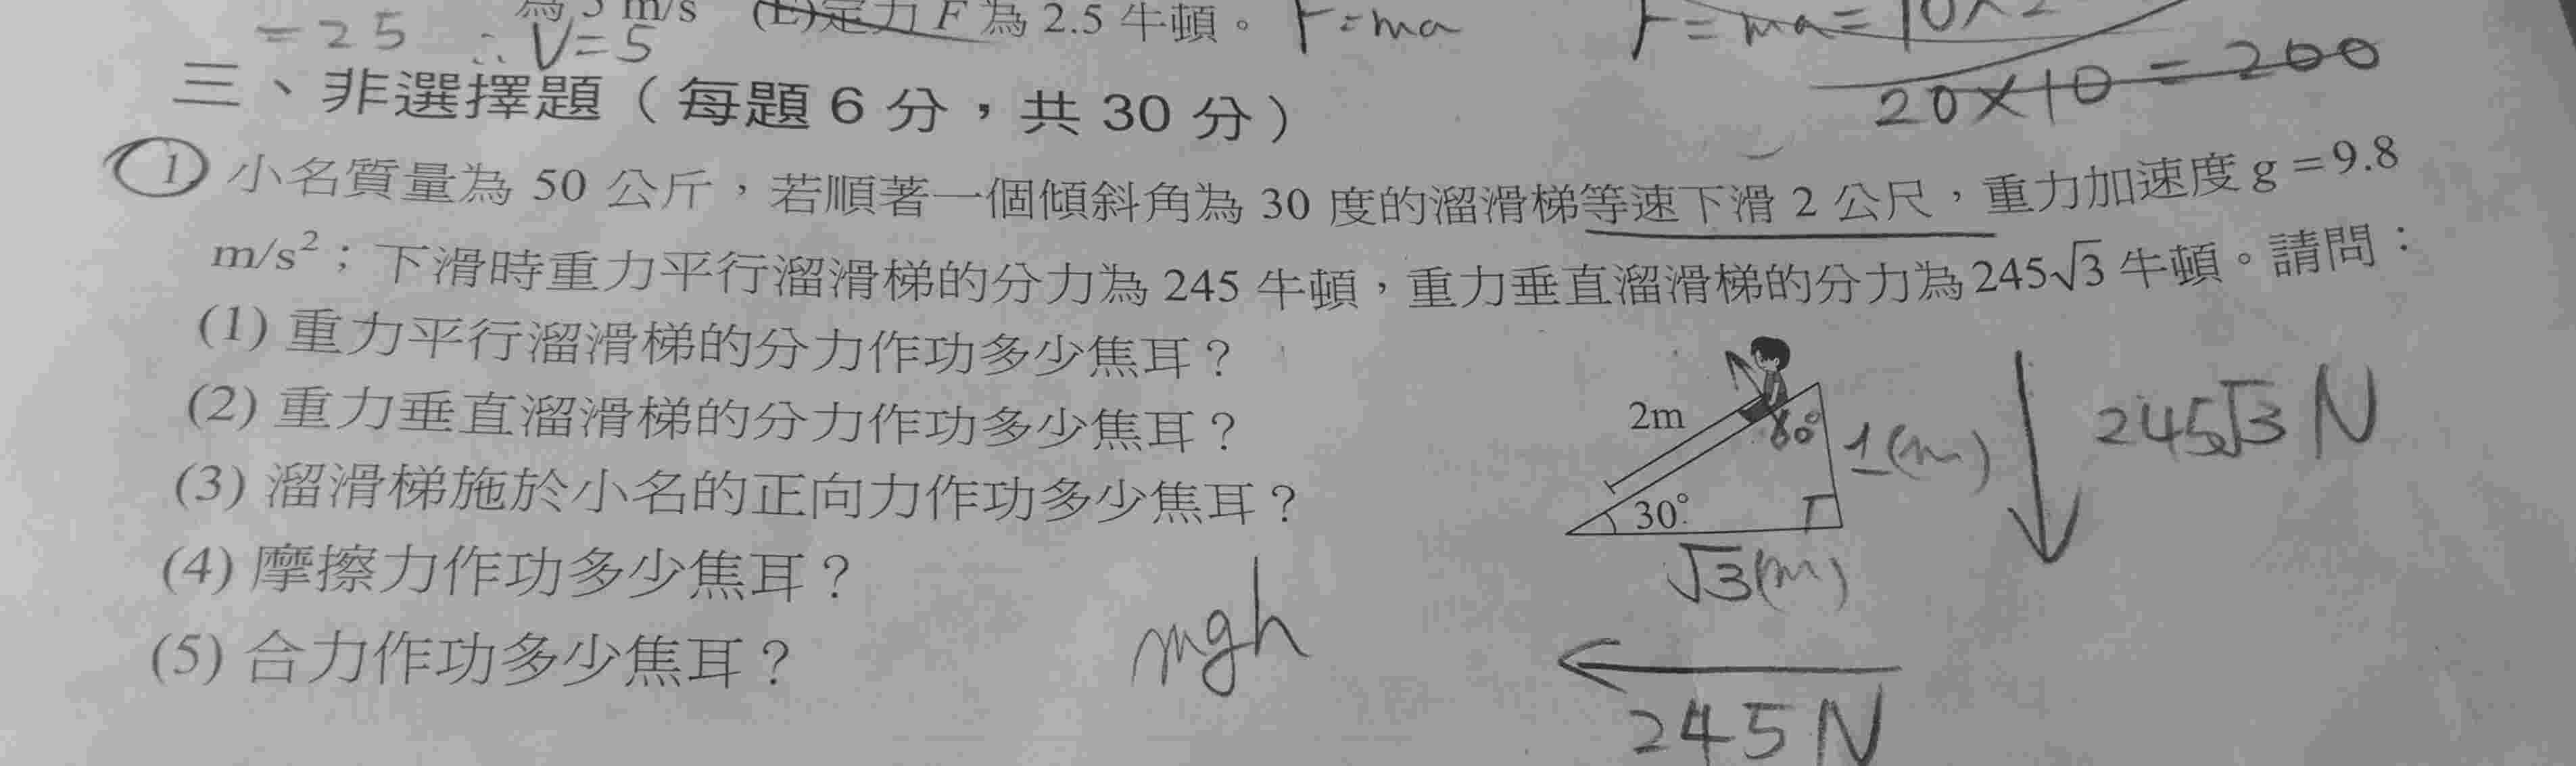 為 5 m/s (E)定力 F 為 2.5 牛頓。 F=ma F=ma=10×2
=25 ∴V=5
20×10=200
三、非選擇題（每題 6 分，共 30 分）
1. 小名質量為 50 公斤，若順著一個傾斜角為 30 度的溜滑梯等速下滑 2 公尺，重力加速度 g =9.8
m/s²；下滑時重力平行溜滑梯的分力為 245 牛頓，重力垂直溜滑梯的分力為 245√3 牛頓。請問：
(1) 重力平行溜滑梯的分力作功多少焦耳？
(2) 重力垂直溜滑梯的分力作功多少焦耳？
(3) 溜滑梯施於小名的正向力作功多少焦耳？
(4) 摩擦力作功多少焦耳？
(5) 合力作功多少焦耳？
2m
60°
1(m)
245√3 N
30°
√3(m)
mgh
245N